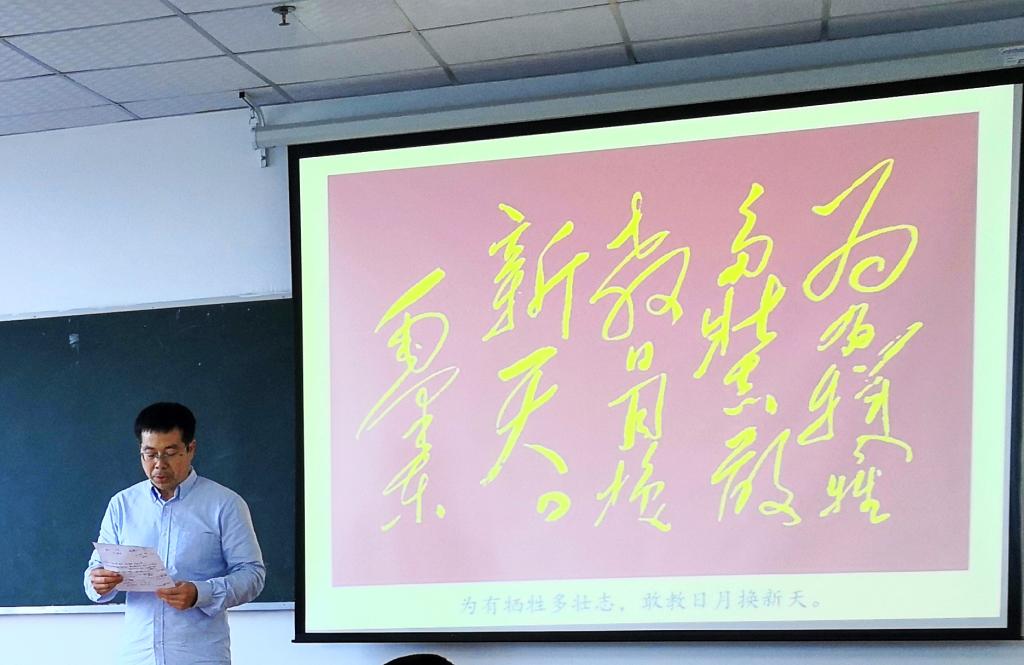 为有犧牲
多壮志敢
教日月换
新天。
毛泽东
为有牺牲多壮志，敢教日月换新天。